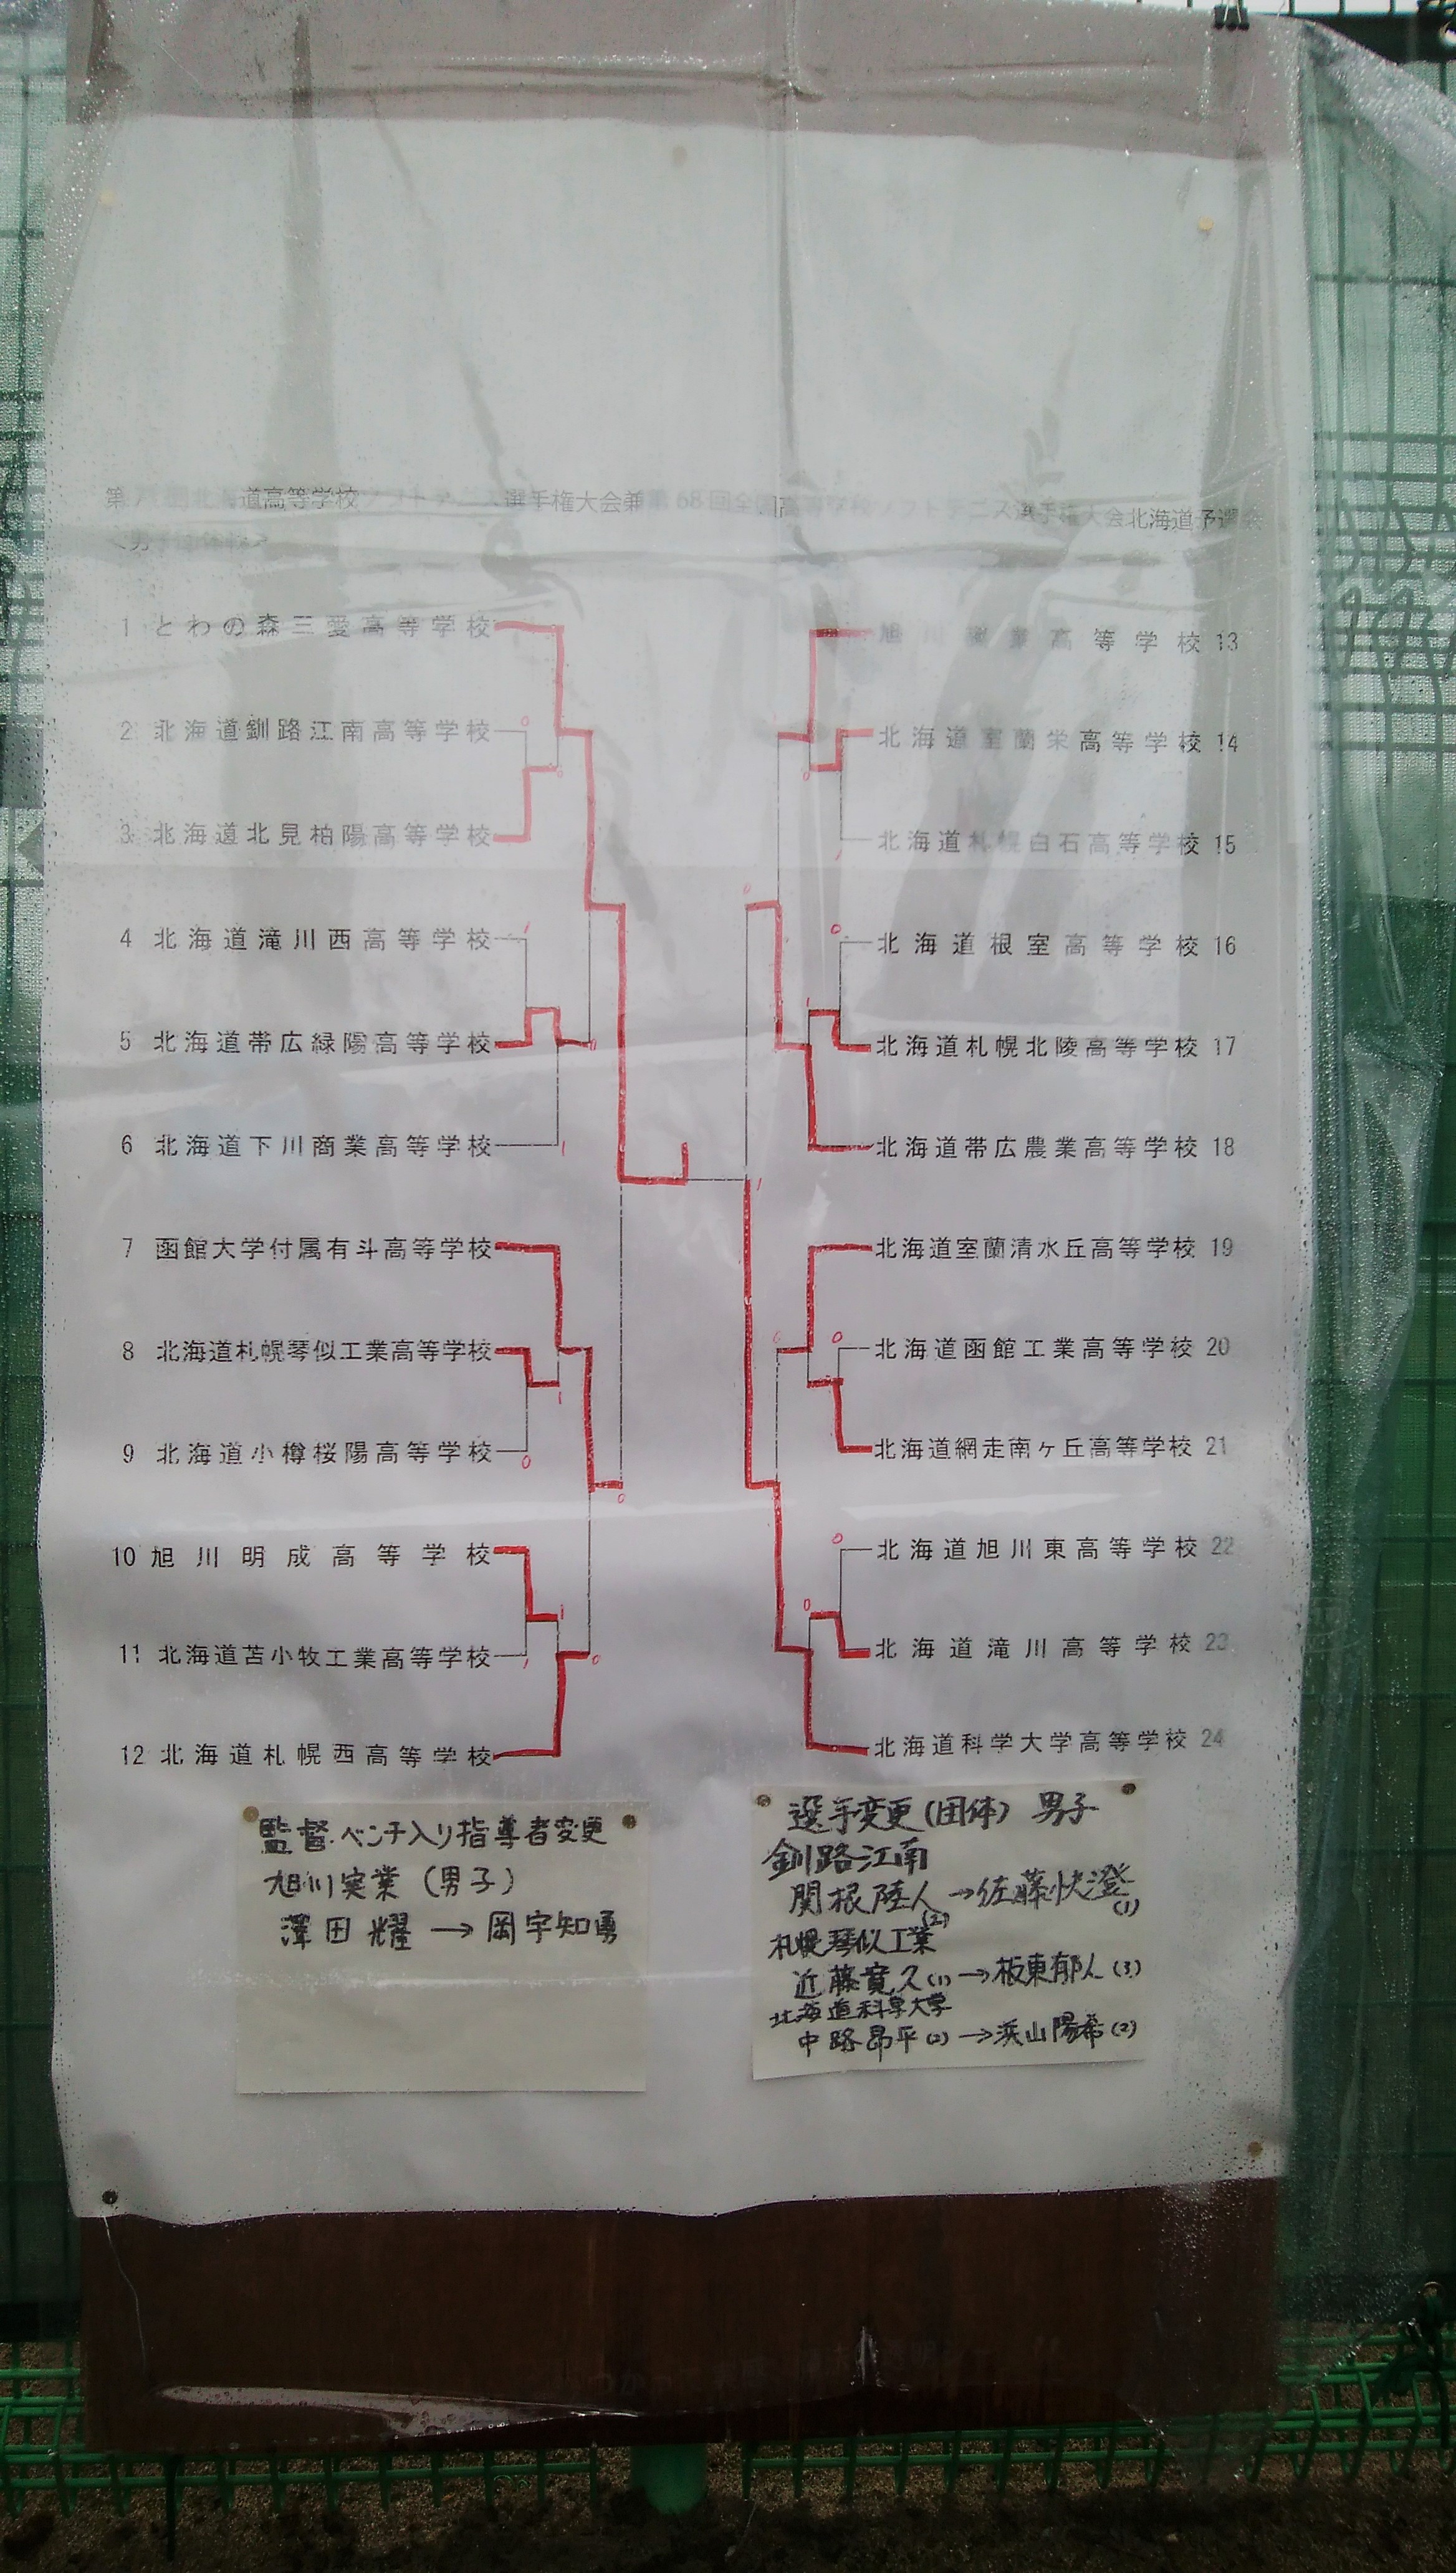 第 回北海道高等学校ソフトテニス選手権大会兼第68回全国高等学校ソフトテニス選手権大会北海道予選会
<男子団体戦>
1 とわの森三愛高等学校
2 北海道釧路江南高等学校
3 北海道北見柏陽高等学校
4 北海道滝川西高等学校
5 北海道帯広緑陽高等学校
6 北海道下川商業高等学校
7 函館大学付属有斗高等学校
8 北海道札幌琴似工業高等学校
9 北海道小樽桜陽高等学校
10 旭川明成高等学校
11 北海道苫小牧工業高等学校
12 北海道札幌西高等学校
旭川実業高等学校 13
北海道室蘭栄高等学校 14
北海道札幌白石高等学校 15
北海道根室高等学校 16
北海道札幌北陵高等学校 17
北海道帯広農業高等学校 18
北海道室蘭清水丘高等学校 19
北海道函館工業高等学校 20
北海道網走南ヶ丘高等学校 21
北海道旭川東高等学校 22
北海道滝川高等学校 23
北海道科学大学高等学校 24
監督・ベンチ入り指導者変更
旭川実業(男子)
澤田 耀→岡宇知勇
選手変更(団体) 男子
釧路江南
関根陸人(2)→佐藤快澄(1)
札幌琴似工業
近藤寛久(1)→板東郁人(3)
北海道科学大学
中路昂平(2)→浜山陽希(2)